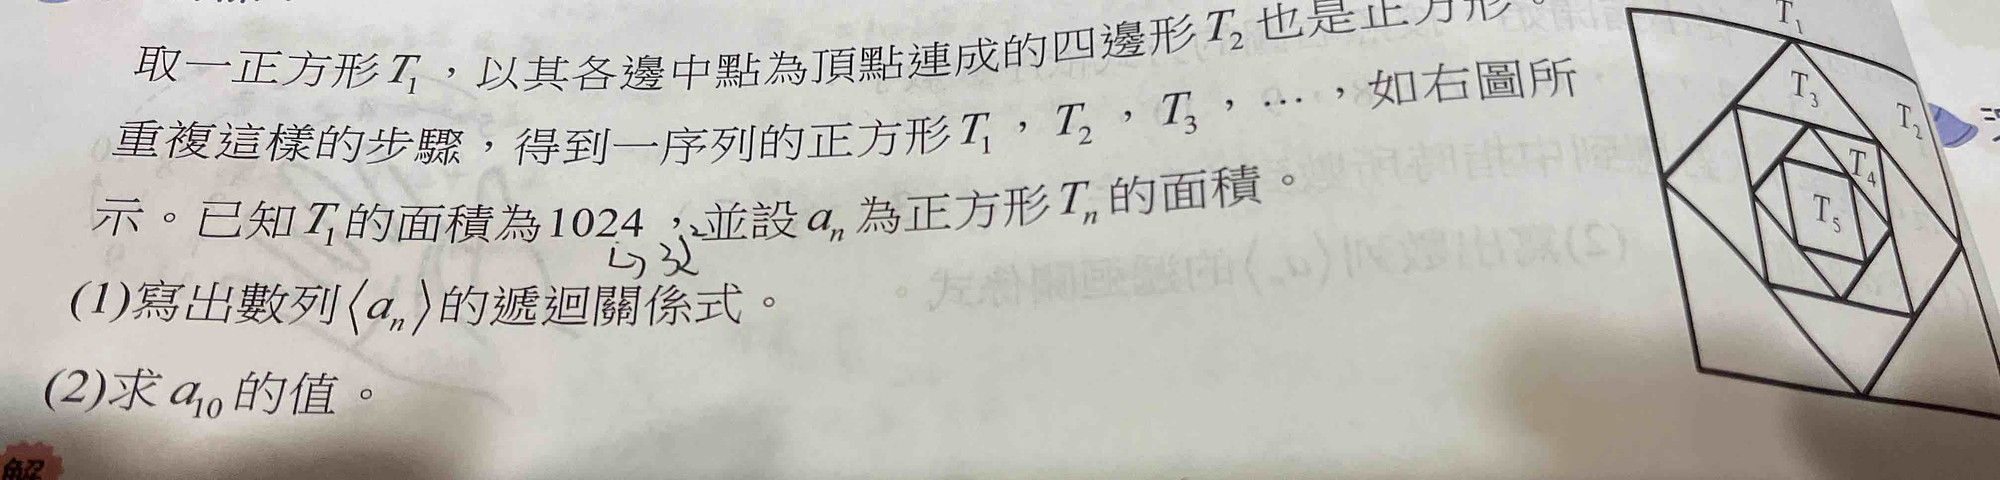 取一正方形T₁，以其各邊中點為頂點連成的四邊形T₂也是正方形。
重複這樣的步驟，得到一序列的正方形T₁，T₂，T₃，…，如右圖所
示。已知T₁的面積為1024，並設aₙ為正方形Tₙ的面積。
32²
(1)寫出數列⟨aₙ⟩的遞迴關係式。
(2)求a₁₀的值。
解
T₁
T₃
T₂
T₄
T₅